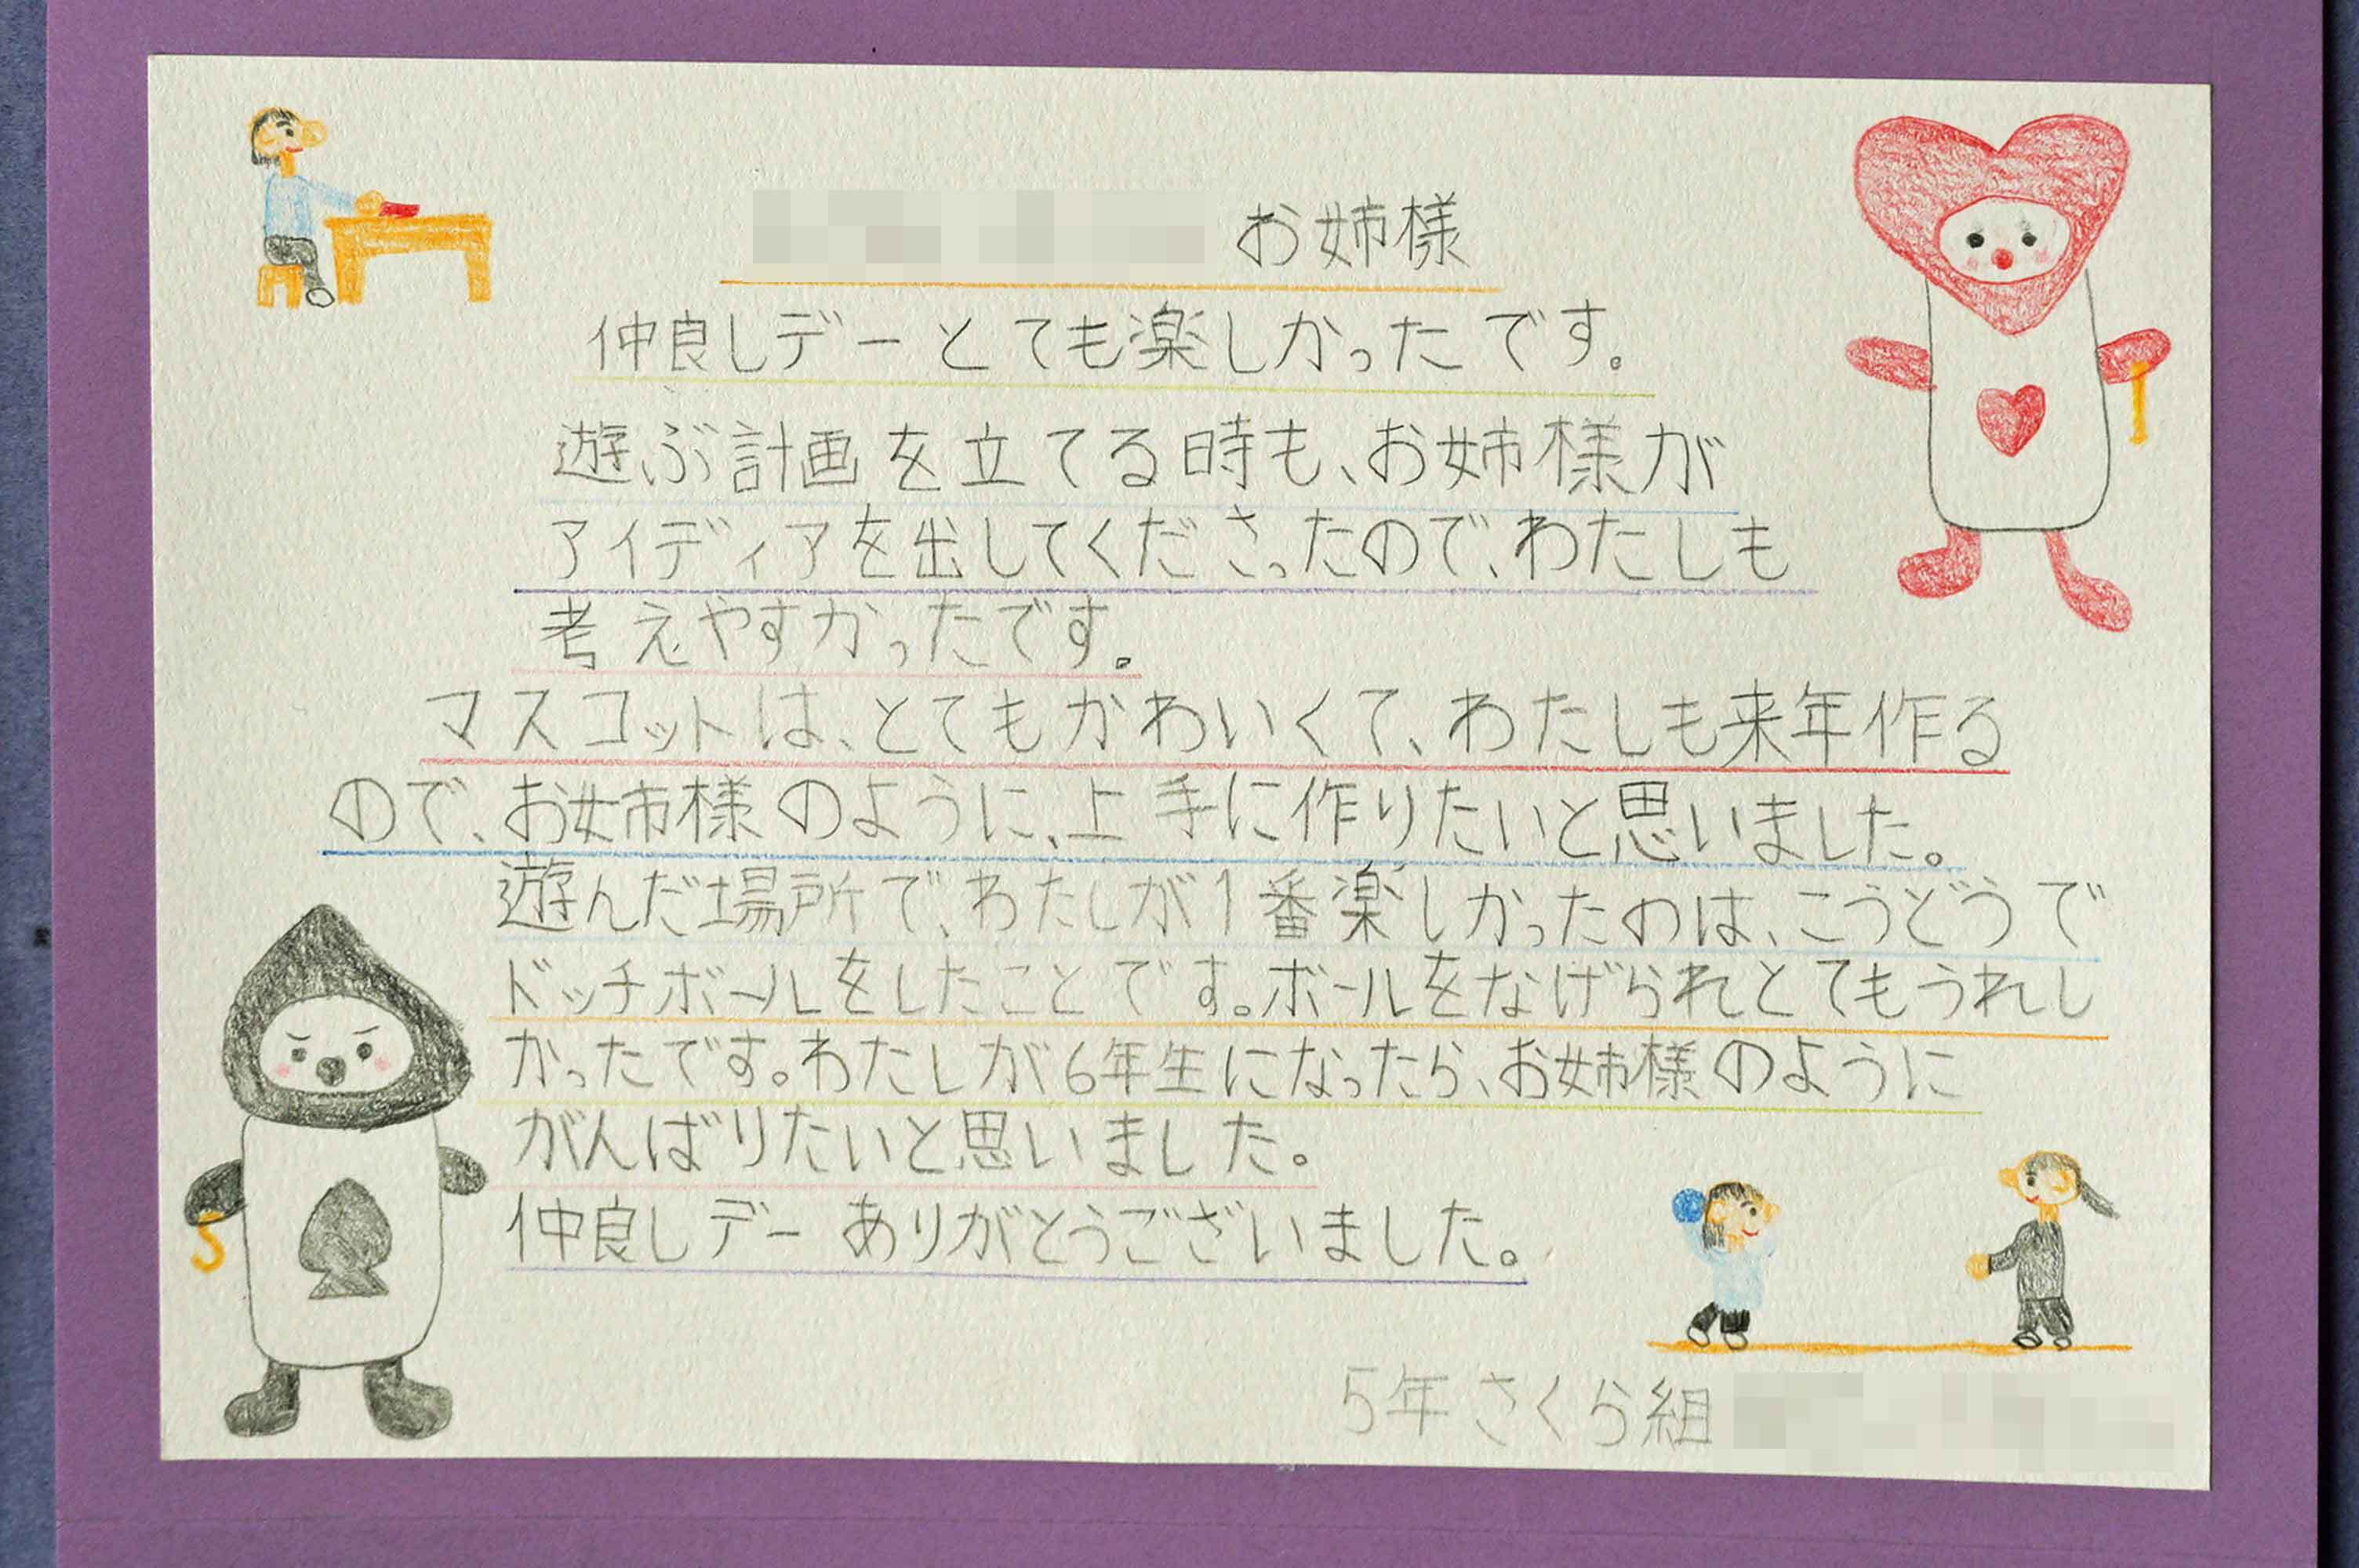 お姉様
仲良しデーとても楽しかったです。
遊ぶ計画を立てる時も、お姉様が
アイディアを出してくださったので、わたしも
考えやすかったです。
マスコットは、とてもかわいくて、わたしも来年作る
ので、お姉様のように、上手に作りたいと思いました。
遊んだ場所で、わたしが1番楽しかったのは、こうどうで
ドッチボールをしたことです。ボールをなげられとてもうれし
かったです。わたしが6年生になったら、お姉様のように
がんばりたいと思いました。
仲良しデーありがとうございました。
5年さくら組